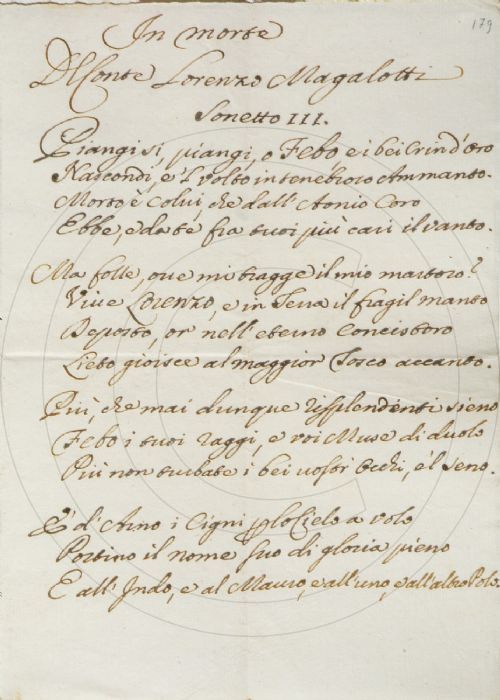 179
In morte
Del Conte Lorenzo Magalotti
Sonetto III.
Piangi sì, piangi, o Febo e i bei Crin d'Oro
Nascondi, e 'l volto in tenebroso Ammanto.
Morto è Colui, che dall' Aonio Coro
Ebbe, e da te fra tuoi più cari il vanto.
Ma folle, ove mi tragge il mio martoro?
Vive Lorenzo, e in Terra il fragil manto
Deposto, or nell' eterno Concistoro
Lieto gioisce al maggior Tosco accanto.
Più, che mai dunque risplendenti sieno
Febo i tuoi raggi, e voi Muse di duolo
Più non turbate i bei vostri occhi, e 'l seno.
E d' Arno i Cigni Cielo a volo
Portino il nome suo di gloria pieno
E all' Indo, e al Mauro, e all'uno, e all'altro Polo.